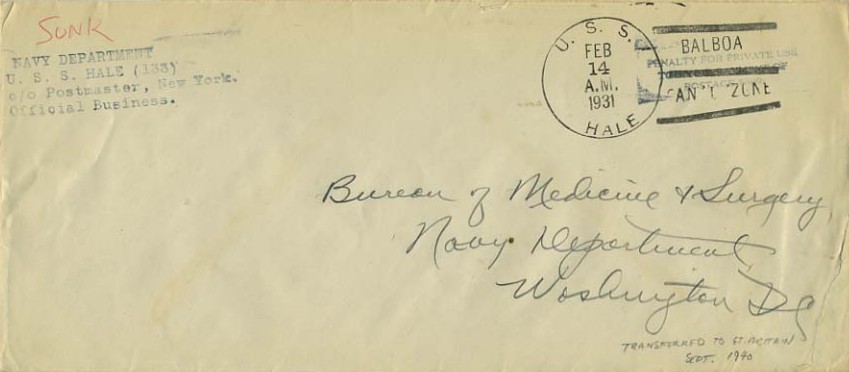 SUNK
NAVY DEPARTMENT
U. S. S. HALE (133)
c/o Postmaster, New York.
Official Business.
U. S. S.
FEB
14
A.M.
1931
HALE
BALBOA
PENALTY FOR PRIVATE USE
OF
POSTAGE
CANAL ZONE
Bureau of Medicine & Surgery,
Navy Department
Washington D C
TRANSFERRED TO GT. BRITAIN
SEPT. 1940